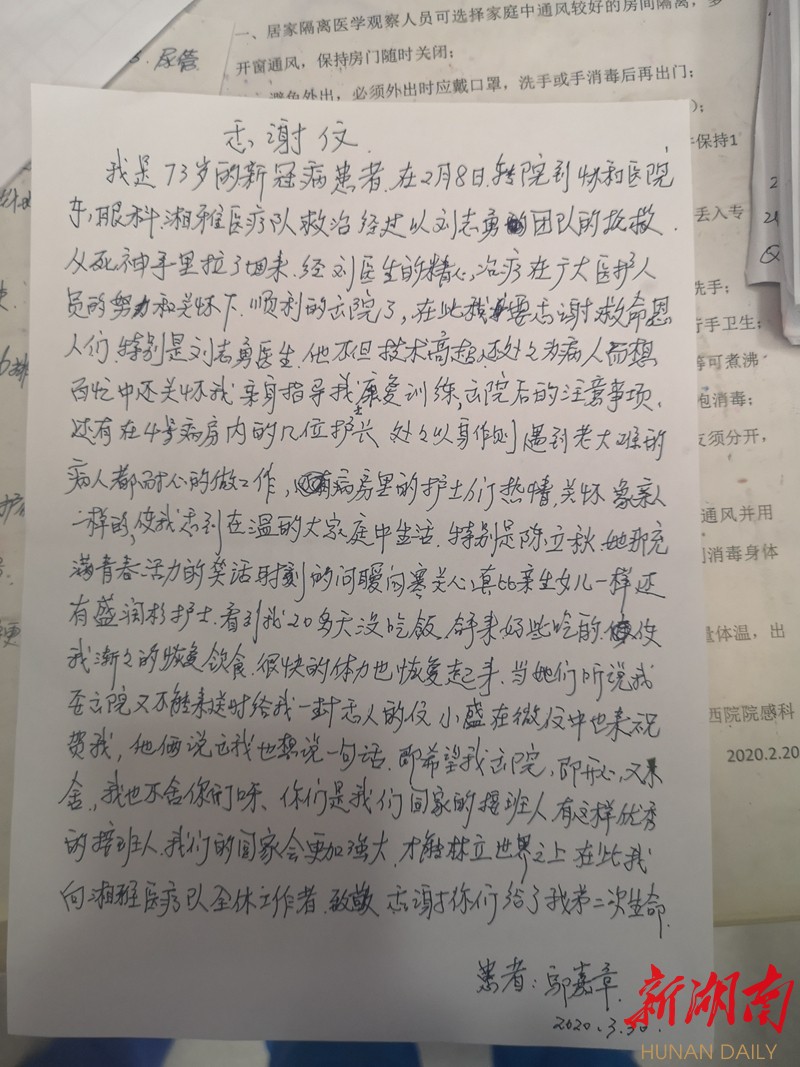 一、居家隔离医学观察人员可选择家庭中通风较好的房间隔离,多
开窗通风,保持房门随时关闭;
避免外出,必须外出时应戴口罩,洗手或手消毒后再出门;
尿管
保持1
丢入专
洗手;
行手卫生;
等可煮沸
泡消毒;
友须分开,
通风并用
消毒身体
量体温,出
西院院感科
2020.2.20
感谢信
我是73岁的新冠病患者.在2月8日.转院到协和医院
东,眼科.湘雅医疗队救治经过以刘志勇的团队的抢救.
从死神手里拉了回来.经刘医生的精心治疗在广大医护人
员的努力和关怀下.顺利的出院了,在此我要感谢救命恩
人们.特别是刘志勇医生.他不但技术高超,还处处为病人而想
百忙中还关怀我亲身指导我康复训练,出院后的注意事项.
还有在4号病房内的几位护士处处以身作则遇到老大难的
病人都耐心的做工作,还有病房里的护士们热情.关怀象亲人
一样的,使我感到在温的大家庭中生活.特别是陈立秋.她那充
满青春活力的笑话时刻的问暖问寒关心真比亲生女儿一样还
有盛润杉护士.看到我20多天没吃饭,都来好些吃的.使
我渐渐的恢复饮食.很快的体力也恢复起来.当她们听说我
要出院又不能来送时给我一封感人的信 小盛在微信中也来祝
贺我,他俩说出我也想说一句话.即希望我出院,即开心,又不
舍,我也不舍你们呀、你们是我们国家的接班人有这样优秀
的接班人.我们的国家会更加强大.才能林立世界之上 在此我
向湘雅医疗队全体工作者.致敬 感谢你们给了我第二次生命.
患者:邬嘉章.
2020.3.30
新湖南
HUNAN DAILY